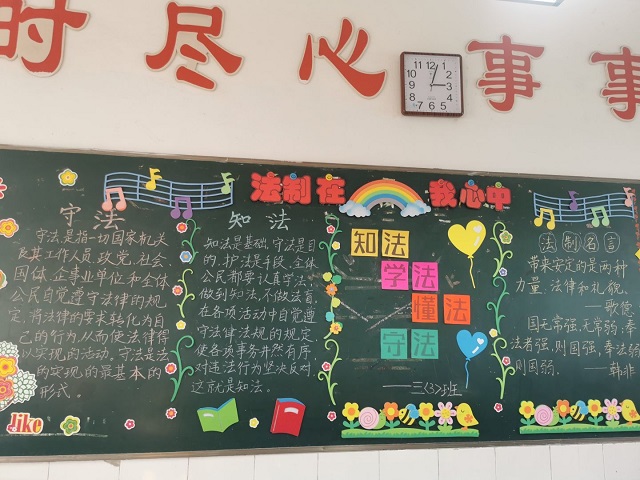 时尽心事事
12 1 2 3 4 5 6 7 8 9 10 11
法制在我心中
守法
守法是指一切国家机关
及其工作人员,政党,社会
团体,企事业单位和全体
公民自觉遵守法律的规
定,将法律的要求转化为自
己的行为,从而使法律得
以实现的活动。守法是法
的实现的最基本的
形式。
Jike
知法
知法是基础,守法是目
的,护法是手段,全体
公民都要认真守法,
做到知法,不做法盲,
在各项活动中自觉遵
守法律法规的规定,
使各项事务井然有序,
对违法行为坚决反对,
这就是知法。
知法
学法
懂法
守法
——三〈3〉班
法制名言
带来安定的是两种
力量,法律和礼貌。
——歌德
国无常强,无常弱,奉
法者强,则国强,奉法弱
则国弱。——韩非